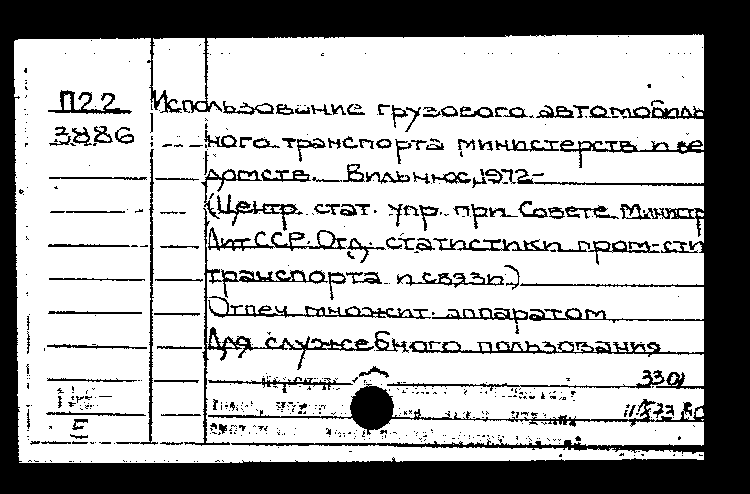 П22 Использование грузового автомобиль
3886 ного транспорта министерств и ве
домств. Вильнюс, 1972-
(Центр. стат. упр. при Совете Министр
ЛитССР. Отд. статистики пром-сти,
транспорта и связи.)
Отпеч. множит. аппаратом.
Для служебного пользования